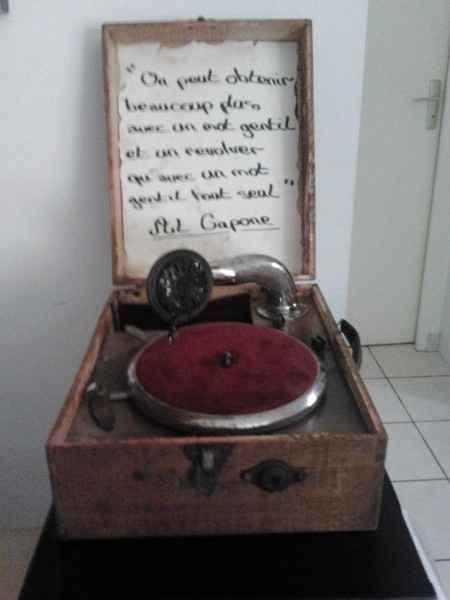 "On peut obtenir
beaucoup plus
avec un mot gentil
et un revolver
qu'avec un mot
gentil tout seul"
Al Capone